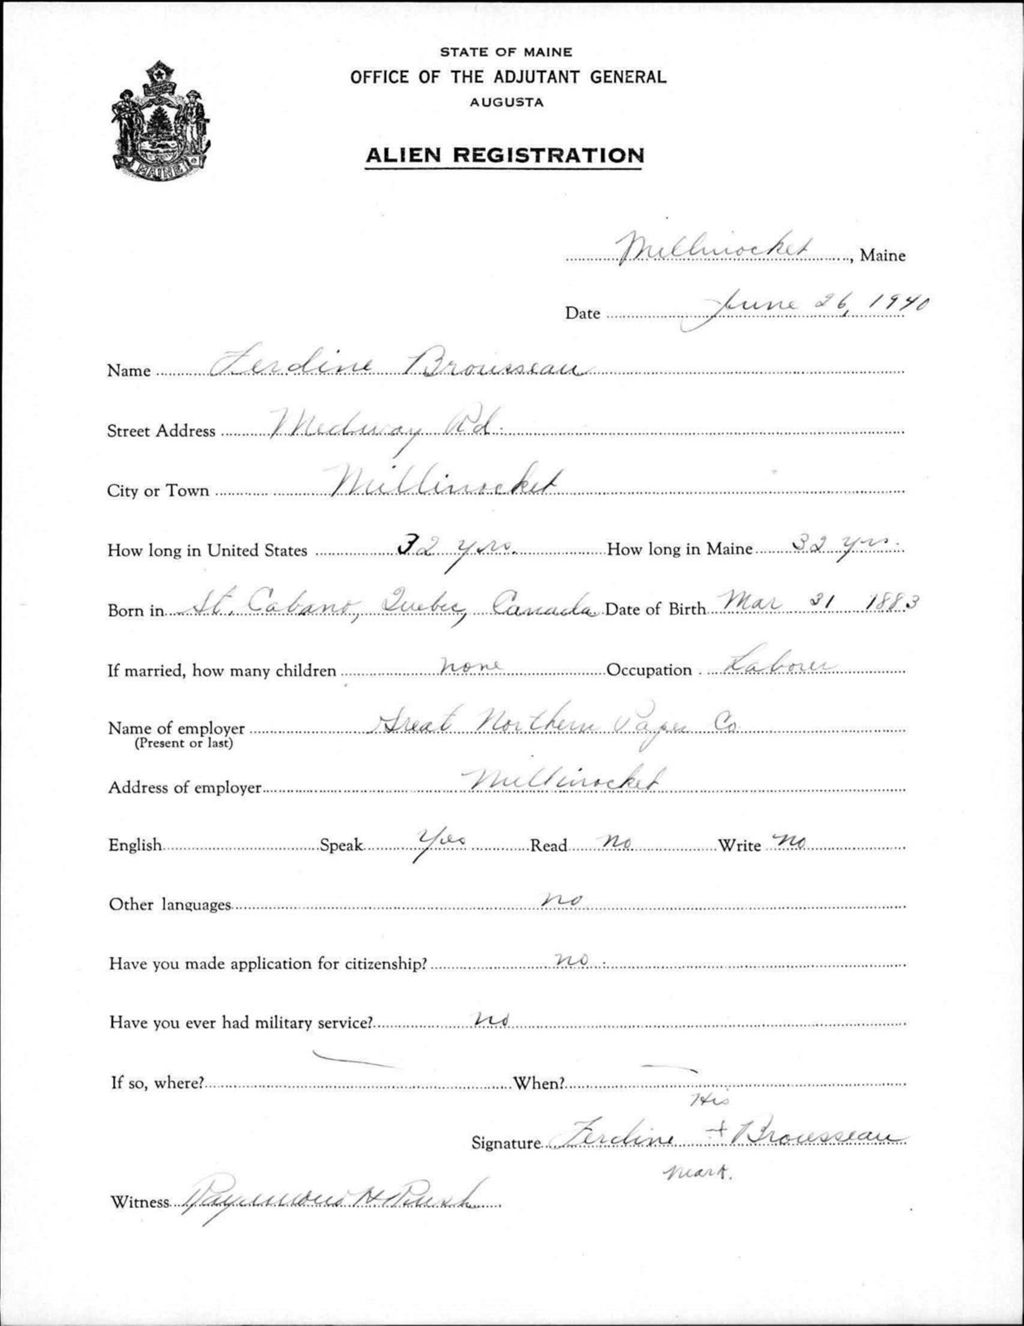 STATE OF MAINE
OFFICE OF THE ADJUTANT GENERAL
AUGUSTA
ALIEN REGISTRATION
MAINE
Millinocket, Maine
Date June 26, 1940
Name Ferdine Brousseau
Street Address Medway Rd.
City or Town Millinocket
How long in United States 32 yrs. How long in Maine 32 yrs.
Born in St. Cabano, Quebec, Canada Date of Birth Mar 31 1883
If married, how many children none Occupation Laborer
Name of employer Great Northern Paper Co
(Present or last)
Address of employer Millinocket
English Speak Yes Read No Write No
Other languages no
Have you made application for citizenship? no
Have you ever had military service? no
If so, where? When?
His
Signature Ferdine + Brousseau
mark.
Witness Raymond H Rush